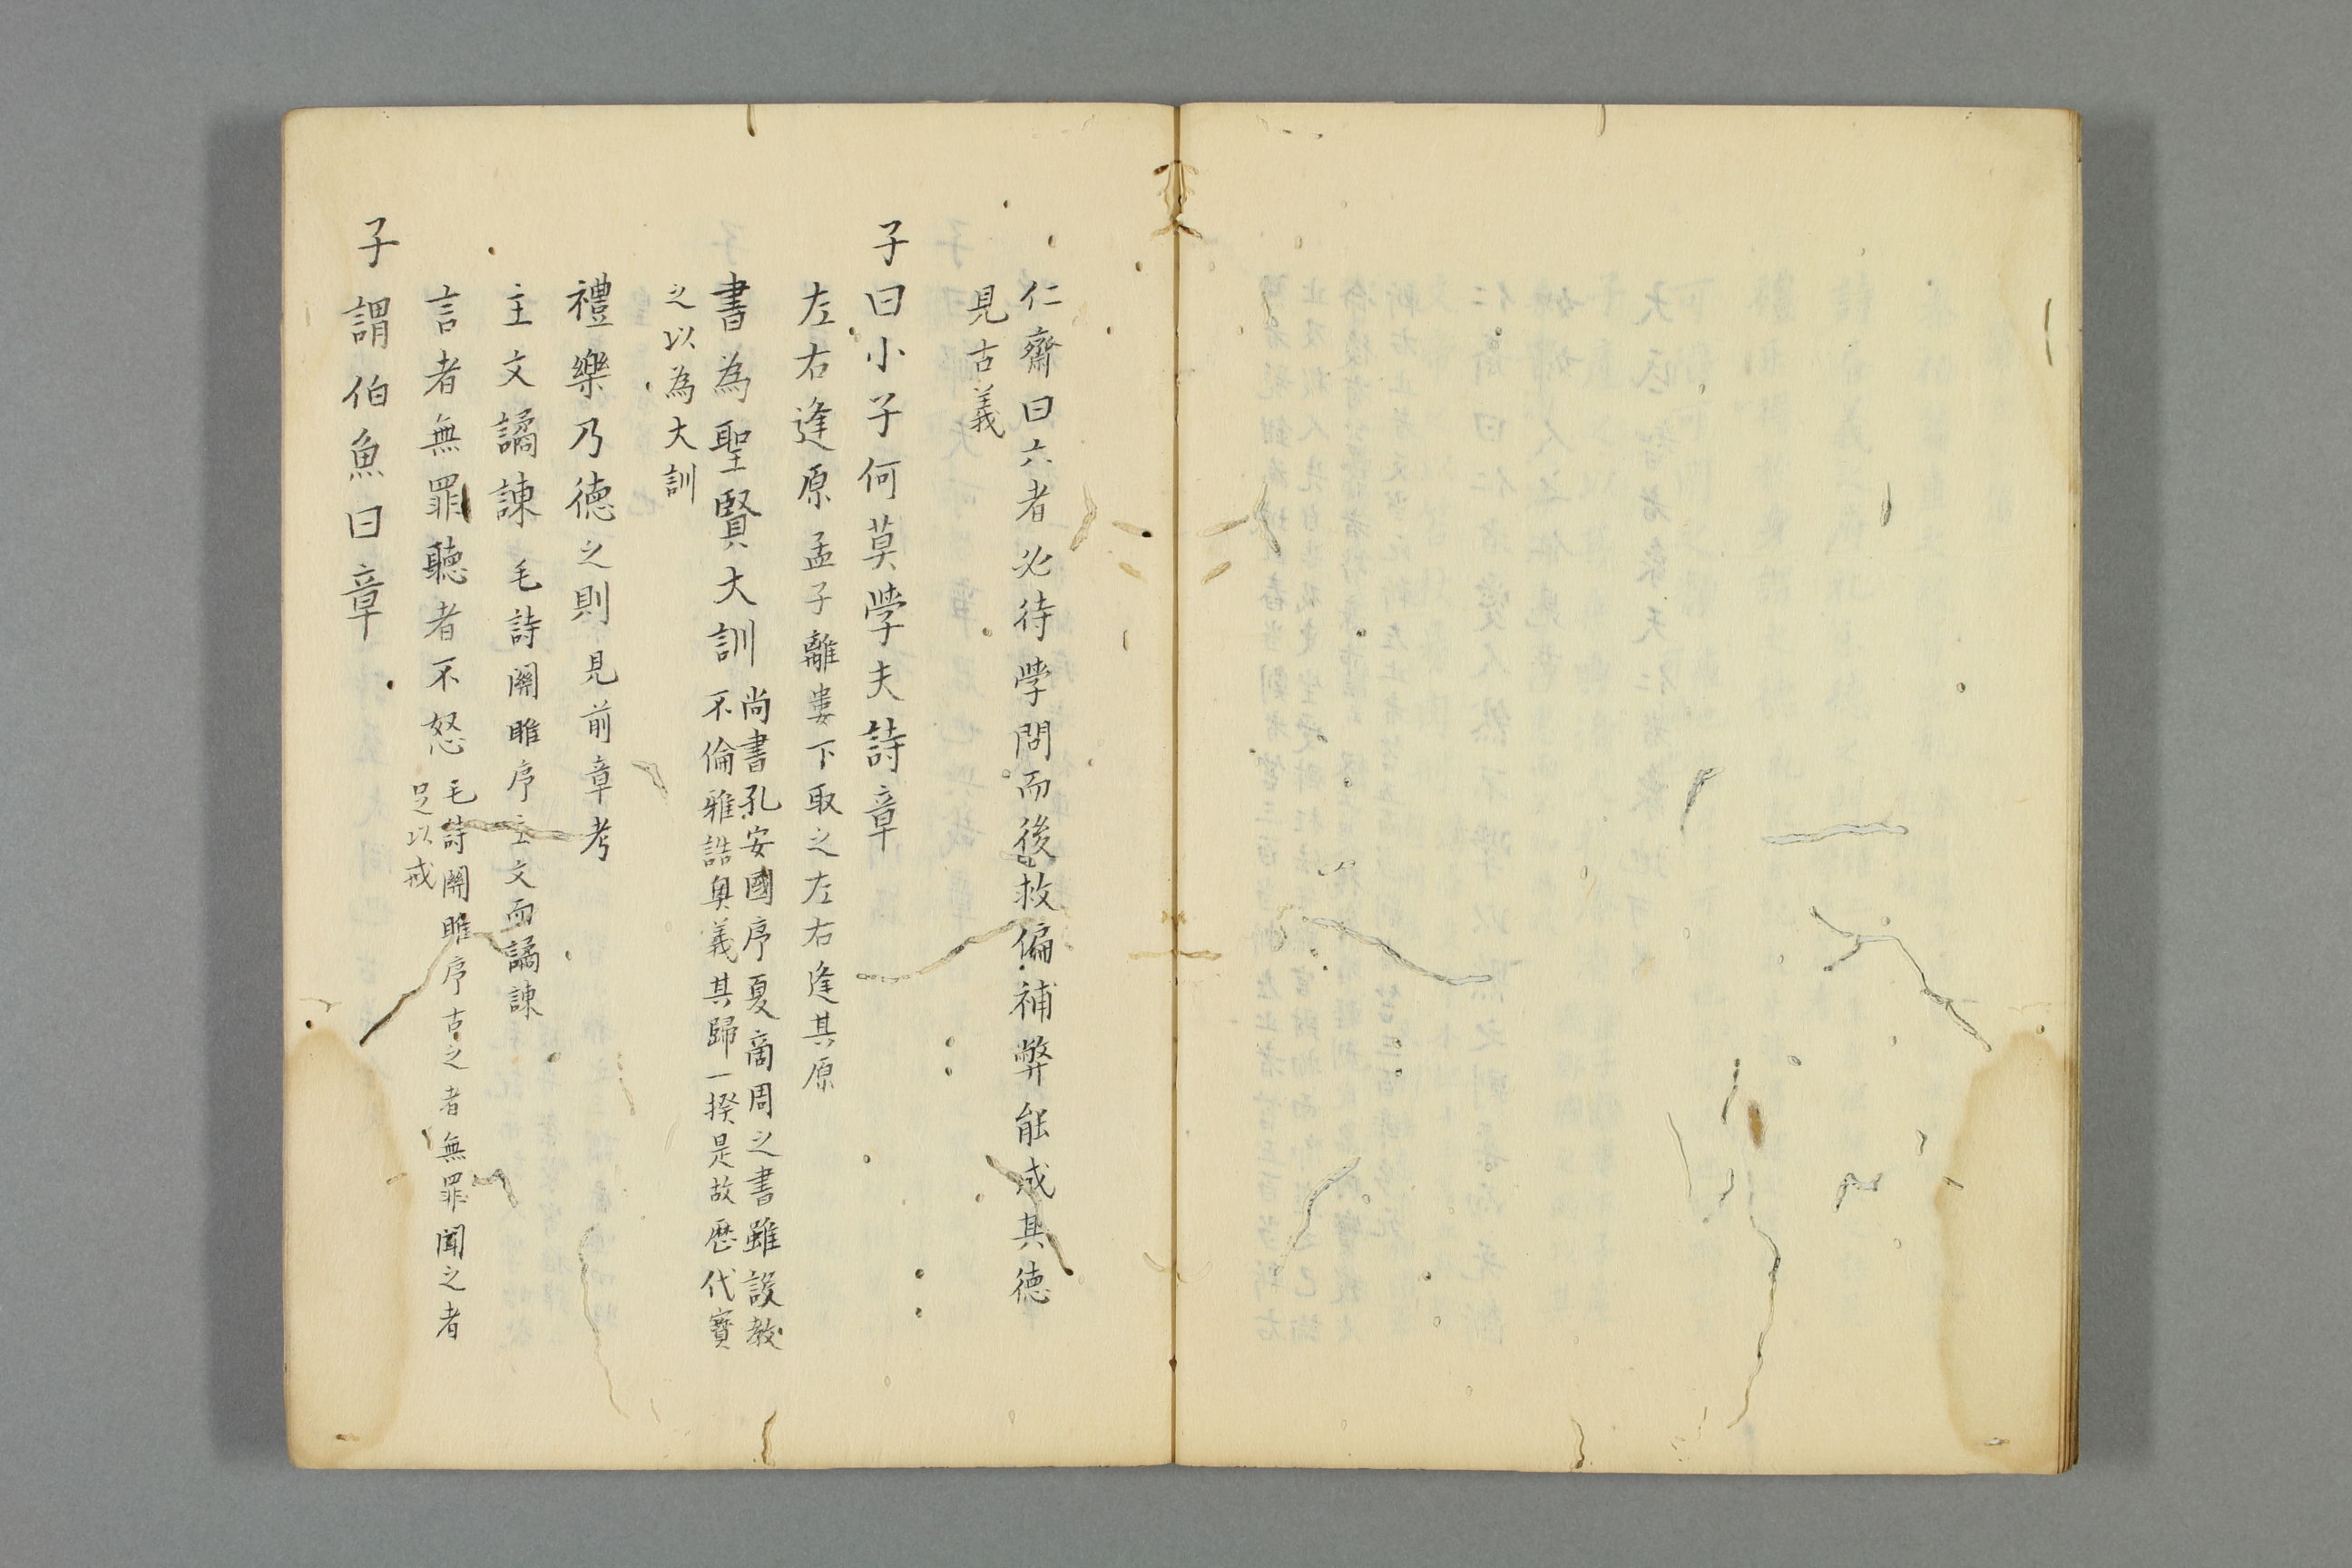 仁齋曰六者必待學問而後救偏補弊能成其德
見古義
子曰小子何莫學夫詩章
左右逢原孟子離婁下取之左右逢其原
書為聖賢大訓尚書孔安國序夏商周之書雖設教
不倫雅誥奥義其歸一揆是故歷代寶
之以為大訓
禮樂乃德之則見前章考
主文譎諫毛詩關雎序主文而譎諫
言者無罪聽者不怒毛詩關雎序古之者無罪聞之者
足以戒
子謂伯魚曰章